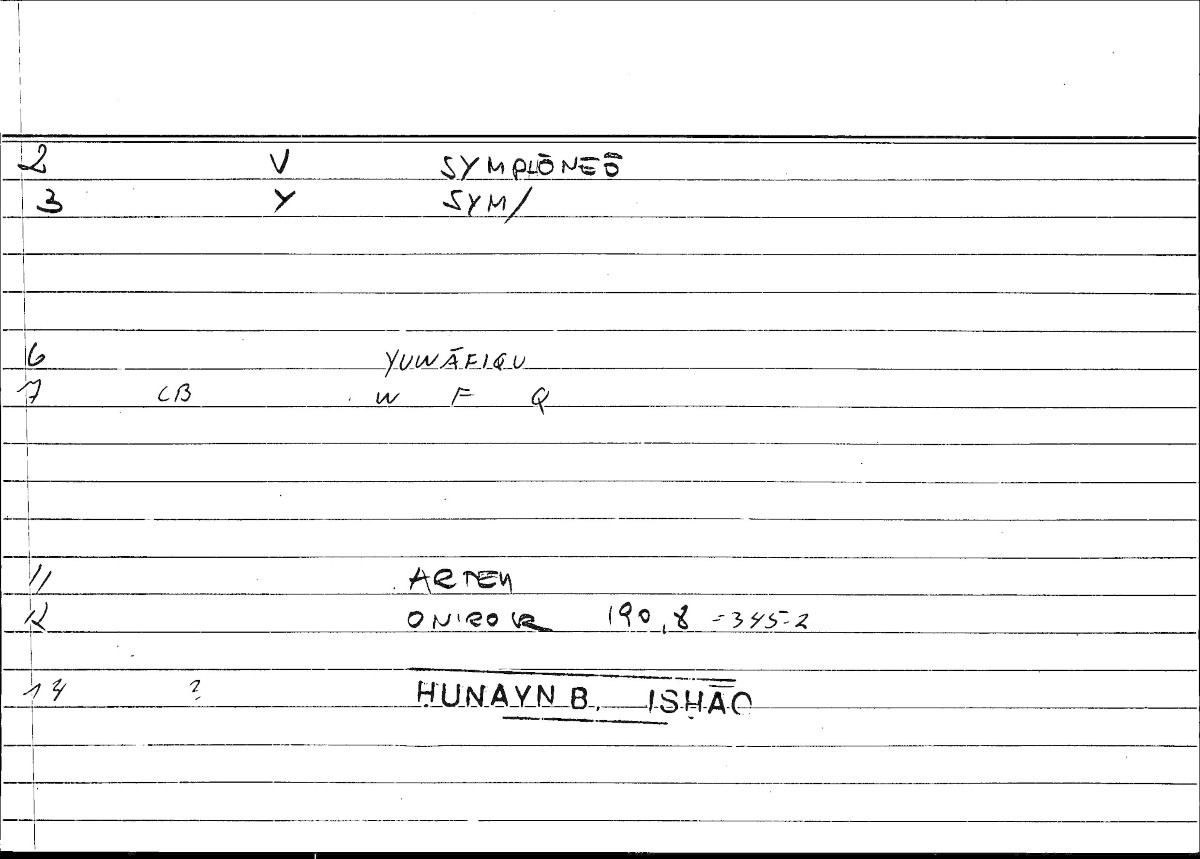 2 V SYMPLŌNEŌ
3 Y SYM/
6 YUWĀFIQU
7 CB W F Q
11 ARTEM
12 ONIROCR 190,8 = 345-2
14 ? ḤUNAYN B. ISḤĀQ